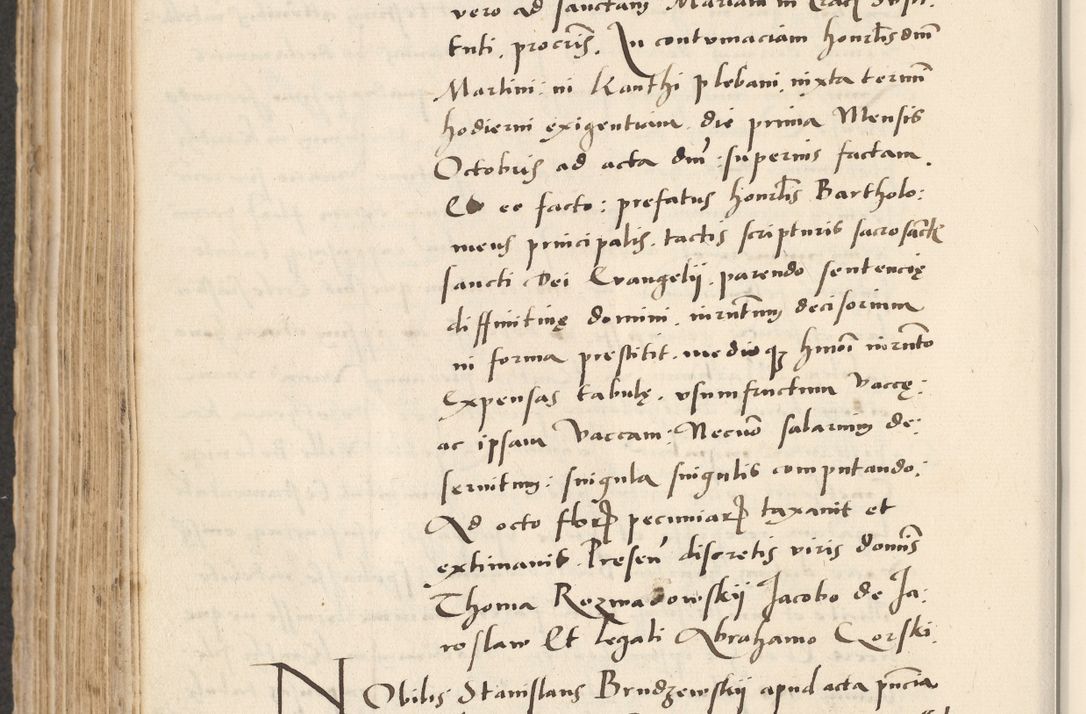 vero ad sanctam Mariam in Crac̃
tuti, procr̃is. In contumaciam honrl̃is dm̃
Martini: in Kanthi plebani, iuxta termĩ
hodierni exigentiam, die prima Mensis
Octobris ad acta dm̃: superius factam.
Et eo facto: prefatus honrl̃is Bartholo:
meus principalis, tactis scripturis sacrosanctẹ
sancti Dei Evangelii, parendo sentencię
diffinitivę domini, iurñtum decisorium
in forma prestitit, medioqꝫ hmõi iurñto
Expensas tabulę, usumfructum vaccę:
ac ipsam vaccam: Necnõ salarium de:
servitum: singula singulis computando,
Ad octo florꝝ pecuniarꝝ taxavit et
extimavit. Preseñ discretis viris domĩs
Thoma Rozwadowskij Jacobo de Ja:
roslaw Et legali Abrahamo Gorski.
Nobilis Stanislaus Brudzewskij apud acta pñcia